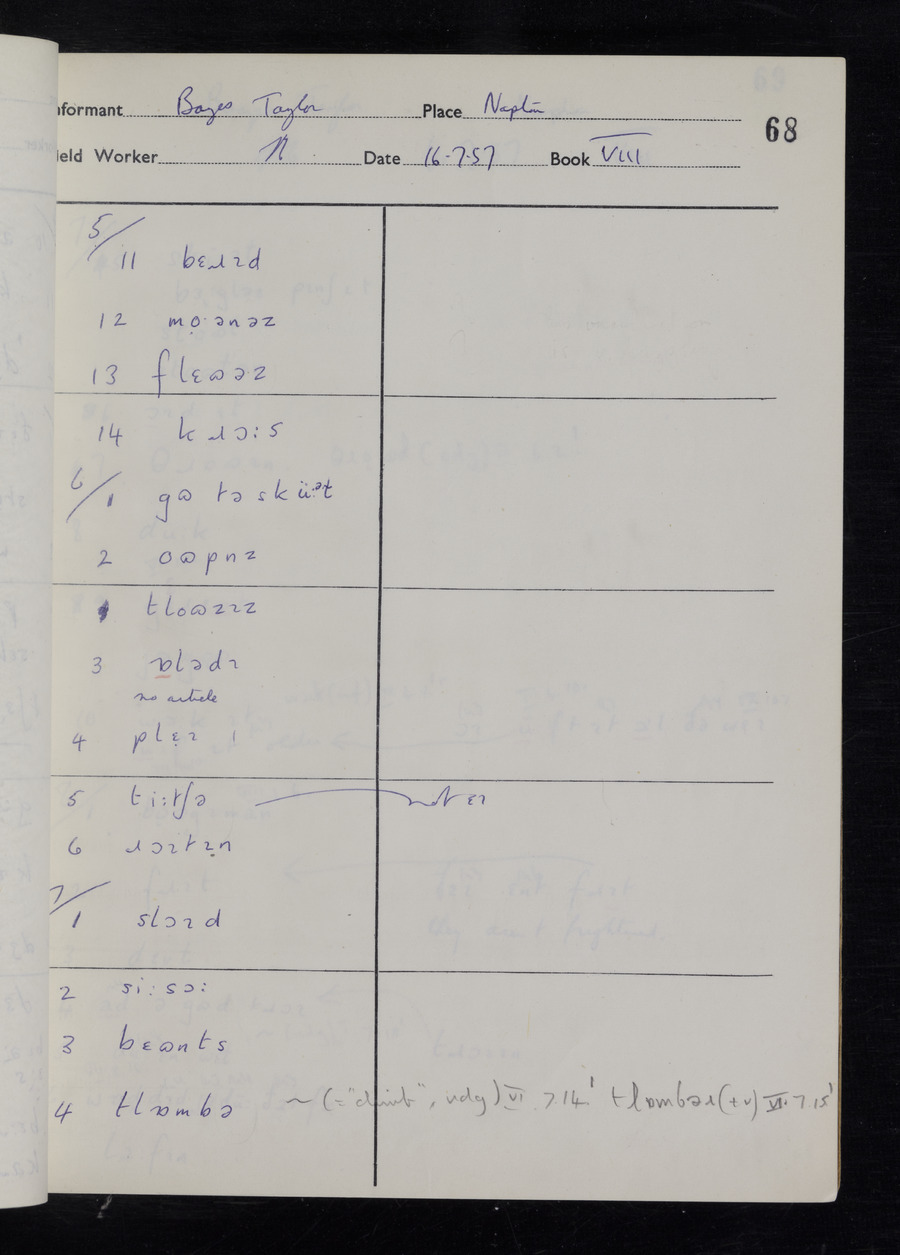 nformant Bayes Taylor Place Napton
68
ield Worker N Date 16-7-57 Book VIII
5/
11 bɛɹɪd
12 mọ·ənəz
13 flɛɷəz
14 kɹɔ:s
6/1 gɷ tə skü:ᵊt
2 oɷpnz
tloɷzɪz
3 ɒlədɪ
no article
4 plɛ̣ɪ ı
5 ti:tʃə not ɛɪ
6 ɹɔɪtɪn
7/1 slɔɪd
2 si:sɔ:
3 bɛɷnts
4 tlɒmbə ~ (= "climb", ndg) VI 7.14ˡ tlɒmbəɹ(+v) VII.7.15ˡ